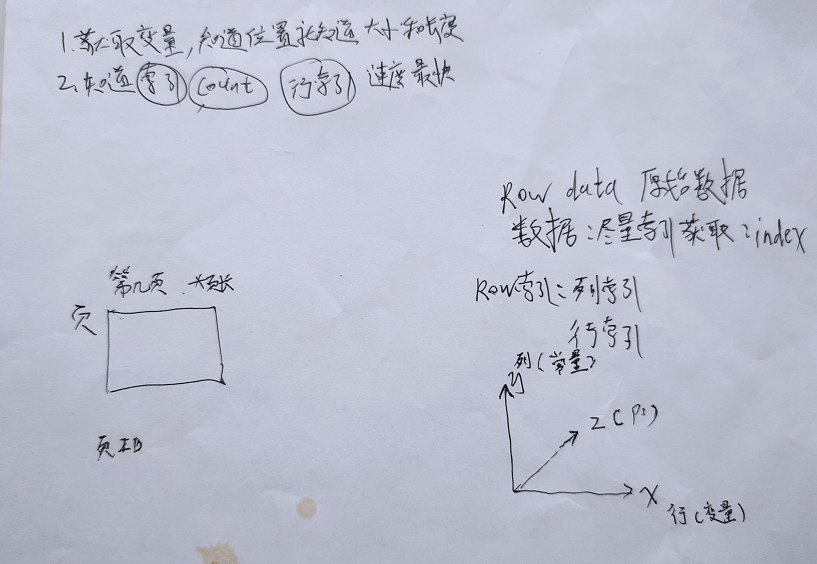 1.获取变量,知道位置就知道大小和长度
2.知道索引 count 行索引 速度最快
Row data 原始数据
数据:尽量索引获取:index
第几页
页
Row索引:列索引
行索引
列(常量)
y
Z(P:)
X
行(变量)
页